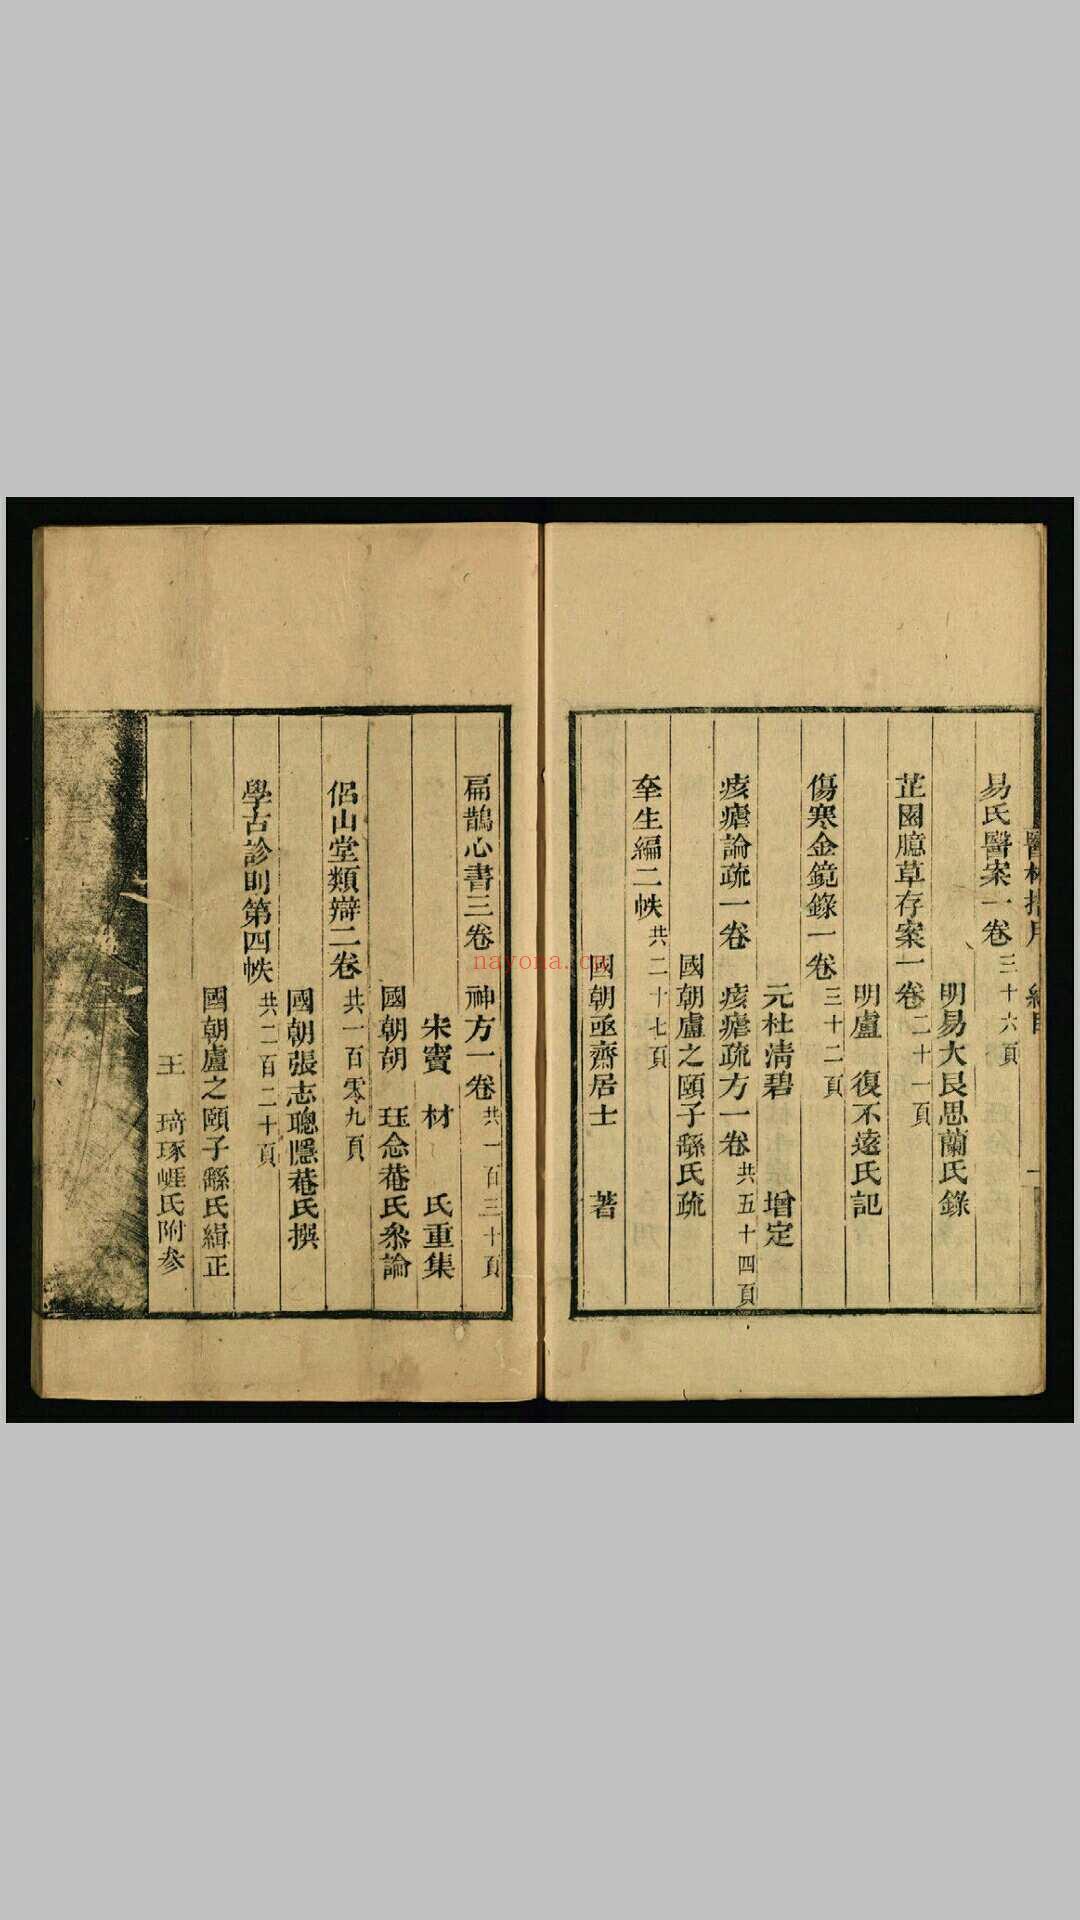 易氏醫案一卷三十六頁
明易大艮思蘭氏錄
芷園臆草存案一卷二十一頁
明盧　復不遠氏記
傷寒金鏡錄一卷三十二頁
元杜清碧　增定
痎瘧論疏一卷　痎瘧疏方一卷共五十四頁
國朝盧之頤子繇氏疏
達生編二帙共二十七頁
國朝亟齋居士　著
扁鵲心書三卷　神方一卷共一百三十頁
宋竇　材　氏重集
國朝胡　珏念菴氏叅論
侶山堂類辯二卷共一百零九頁
國朝張志聰隱菴氏撰
學古診則第四帙共一百二十頁
國朝盧之頤子繇氏緝正
王　琦琢崖氏附參
nayona.cn